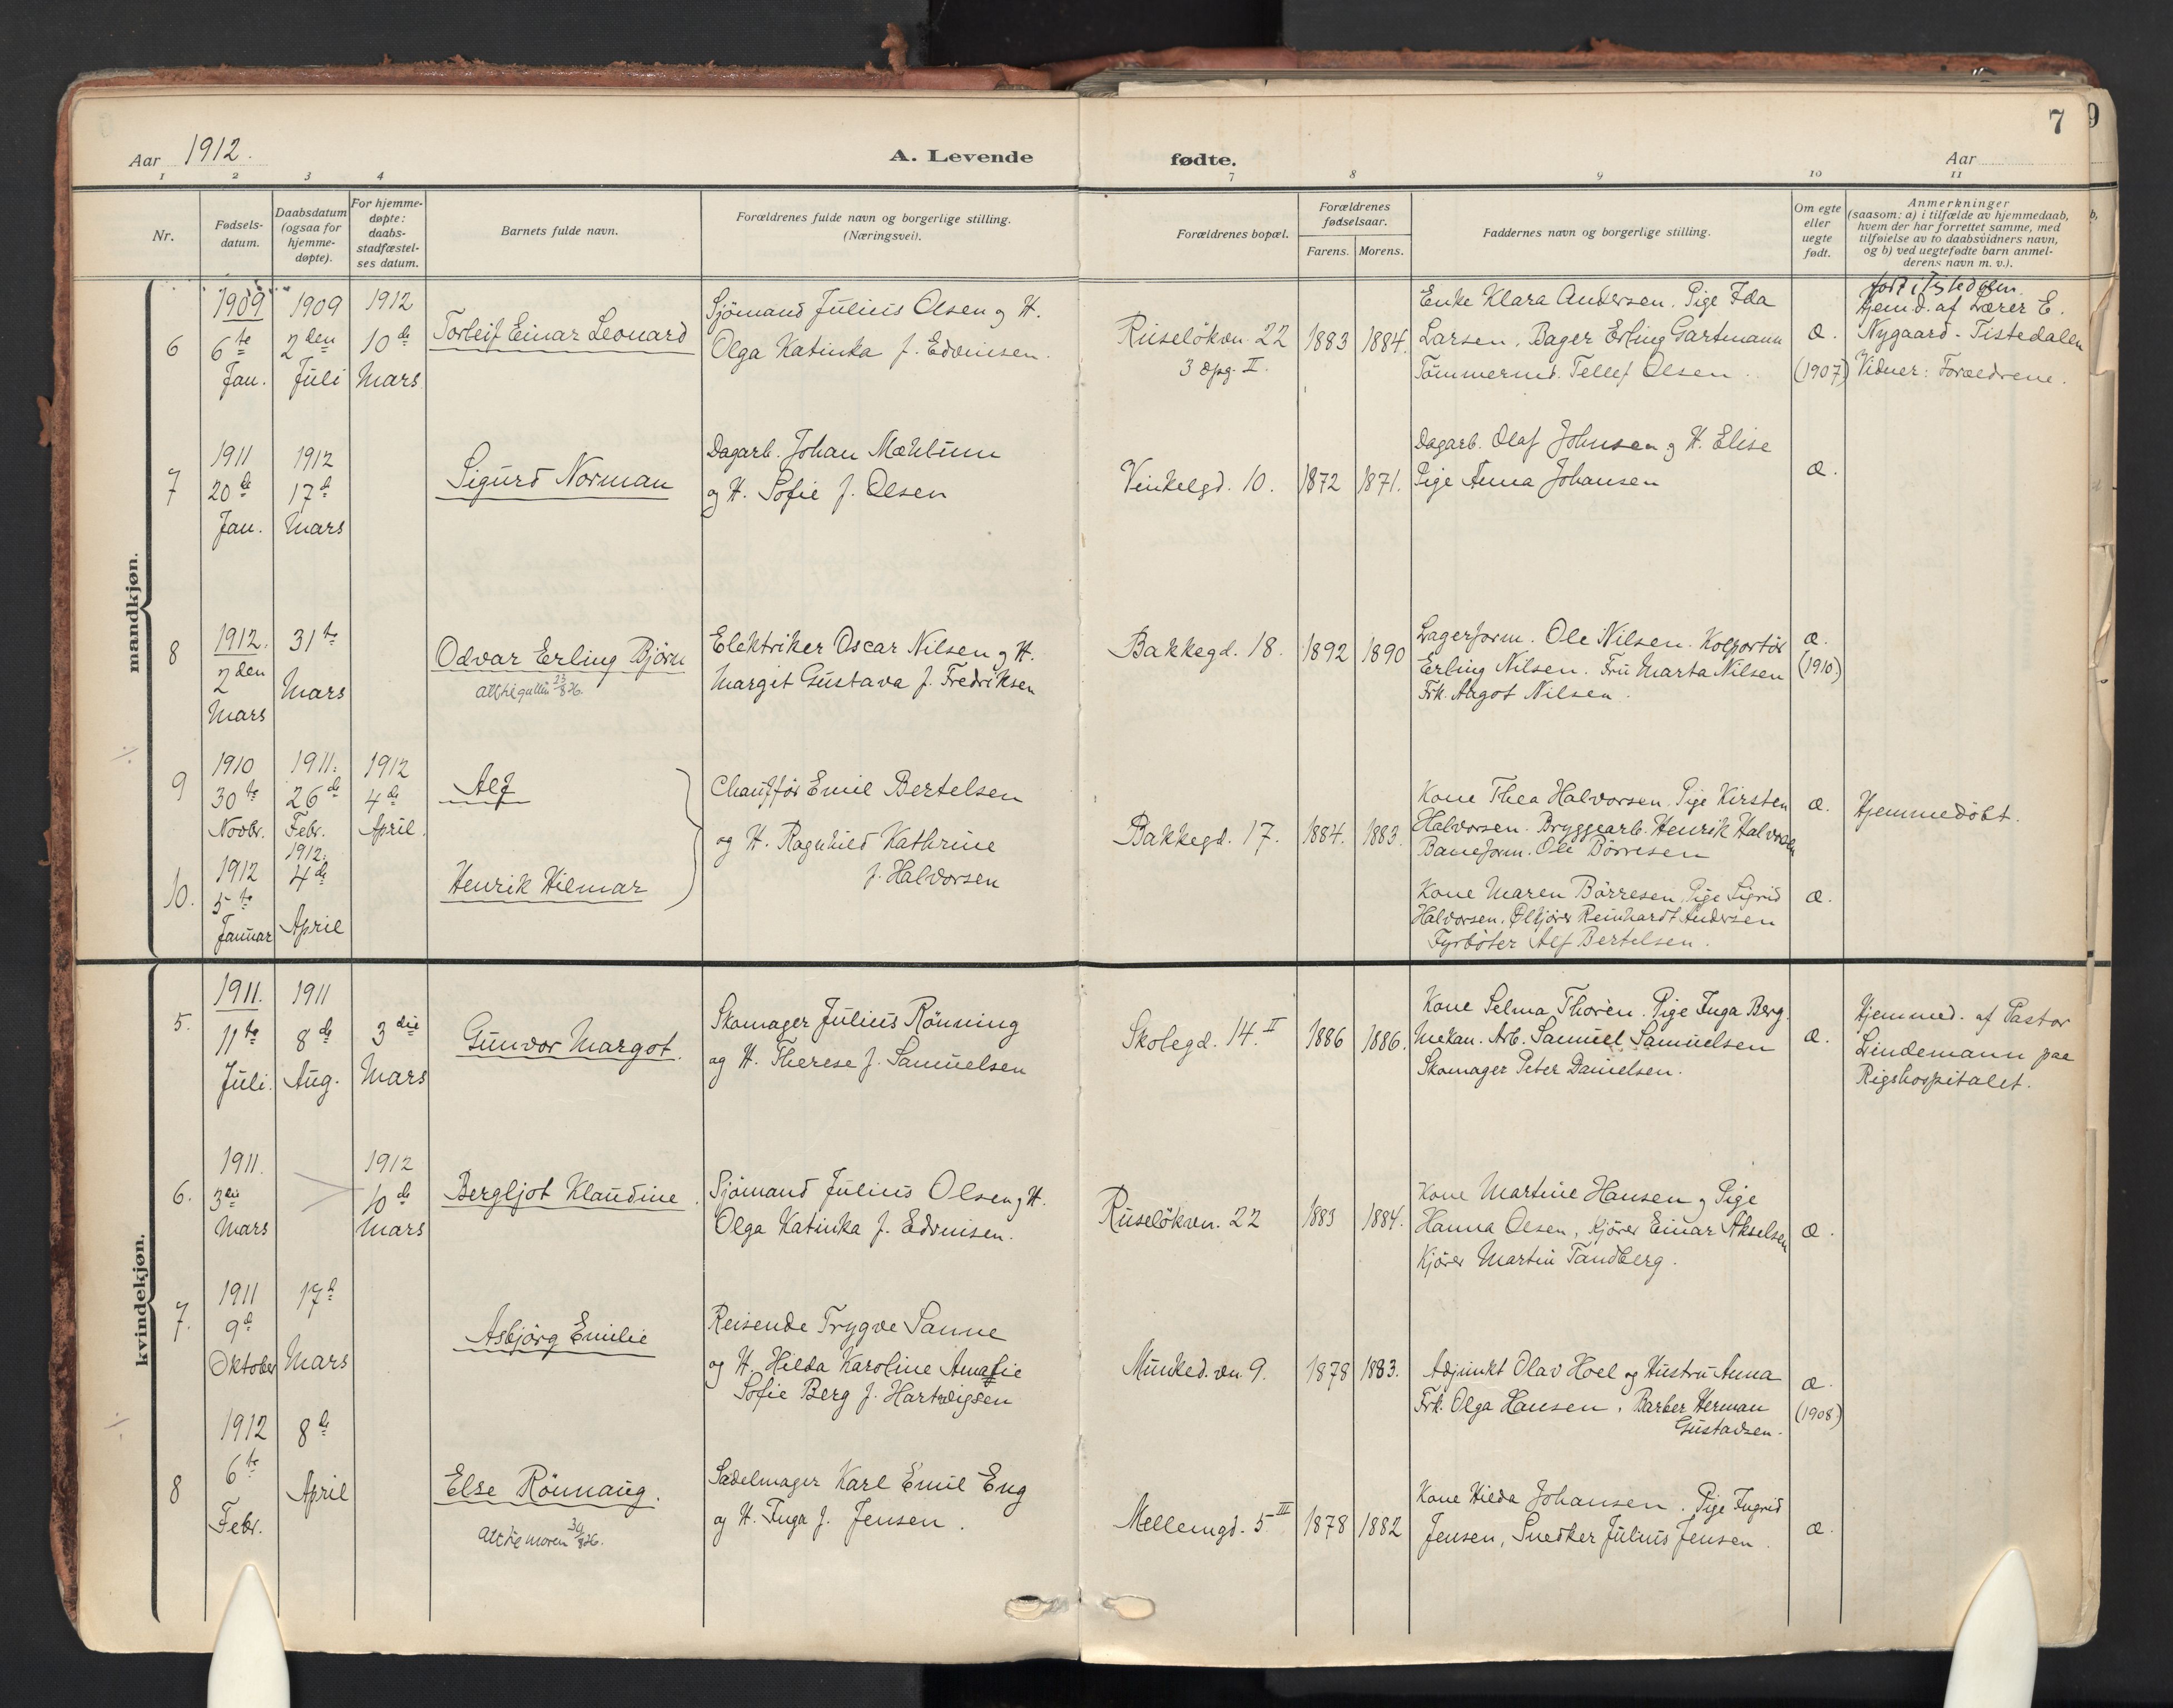 Aar 1912.
A. Levende
fødte.
7
9
Aar
1 2 3 4
7 8 9 10 11
Nr.
Fødsels-
datum.
Daabsdatum
(ogsaa for
hjemme-
døpte).
For hjemme-
døpte:
daabs-
stadfæstel-
ses datum.
Barnets fulde navn.
Forældrenes fulde navn og borgerlige stilling.
(Næringsvei).
Forældrenes bopæl.
Forældrenes
fødselsaar.
Farens. Morens.
Faddernes navn og borgerlige stilling.
Om egte
eller
uegte
født.
Anmerkninger
(saasom: a) i tilfælde av hjemmedaab,
hvem der har forrettet samme, med
tilføielse av to daabsvidners navn,
og b) ved uegtefødte barn anmel-
derens navn m. v.).
mandkjøn.
6
1909
6te
Jan.
1909
2den
Juli
1912
10de
Mars
Torleif Einar Leonard
Sjömand Julius Olsen og H.
Olga Katinka f. Edvinsen.
Ruselökvn. 22
3 opg. II.
1883 1884.
Enke Klara Andersen. Pige Ida
Larsen, Bager Erling Gartmann
Tömmermd. Tellef Olsen.
æ.
(1907)
født i Tistedalen.
Hjemd. af Lærer E.
Nygaard - Tistedalen
Vidner: Forældrene.
7
1911
20de
Jan.
1912
17de
Mars
Sigurd Norman
Dagarb. Johan Mæhlum
og H. Sofie f. Olsen
Vinkelgd. 10.
1872 1871.
Dagarb. Olaf Johnsen og H. Elise
Pige Anna Johansen
æ.
8
1912.
2den
Mars
31te
Mars
Odvar Erling Björn
23/8 26.
Elektriker Oscar Nilsen og H.
Margit Gustava f. Fredriksen
Bakkegd. 18.
1892 1890
Lagerform. Ole Nilsen. Kolportör
Erling Nilsen. Fru Marta Nilsen
Frk. Argot Nilsen.
æ.
(1910.)
9
1910
30te
Novbr.
1911.
26de
Febr.
1912
4de
April.
Alf
Chauffør Emil Bertelsen
og H. Ragnhild Kathrine
f. Halvorsen
Bakkegd. 17.
1884. 1883.
Kone Thea Halvorsen. Pige Kirsten
Halvorsen. Bryggearb. Henrik Halvorsen
Baneform. Ole Börresen
æ.
Hjemmedöbt.
10.
1912
5te
Januar
1912.
4de
April
Henrik Hilmar
Kone Maren Börresen, Pige Sigrid
Halvorsen, Ölkjörer Reinhardt Andersen
Fyrböter Alf Bertelsen.
æ.
kvindekjøn.
5.
1911.
11te
Juli.
1911
8de
Aug.
3die
Mars
Gunvor Margot.
Skomager Julius Rönning
og H. Therese f. Samuelsen
Skolegd. 14.II
1886 1886.
Kone Selma Thoren. Pige Inga Berg.
Mekan. Arb. Samuel Samuelsen
Skomager Peter Danielsen.
æ.
Hjemmed. af Pastor
Lindemann paa
Rigshospitalet.
6.
1911.
3die
Mars
1912
10de
Mars
Bergljot Klaudine.
Sjömand Julius Olsen og H.
Olga Katinka f. Edvinsen.
Ruselökvn. 22
1883 1884.
Kone Martine Hansen og Pige
Hanna Olsen, Kjörer Einar Akselsen
Kjörer Martin Tandberg.
æ.
7.
1911
9de
Oktober
17de
Mars
Asbjörg Emilie
Reisende Trygve Sanne
og H. Hilda Karoline Amalie
Sofie Berg f. Hartvigsen
Munked.vn. 9.
1878 1883.
Adjunkt Olav Hoel og Hustru Anna
Frk. Olga Hansen, Barber Herman
Gustavsen.
æ.
(1908)
8
1912
6te
Febr.
8de
April
Else Rönnaug.
Att. til moren 30/8 26.
Sadelmager Karl Emil Eng
og H. Inga f. Jensen.
Mellemgd. 5 III
1878 1882
Kone Hilda Johansen. Pige Ingrid
Jensen, Snedker Julius Jensen.
æ.